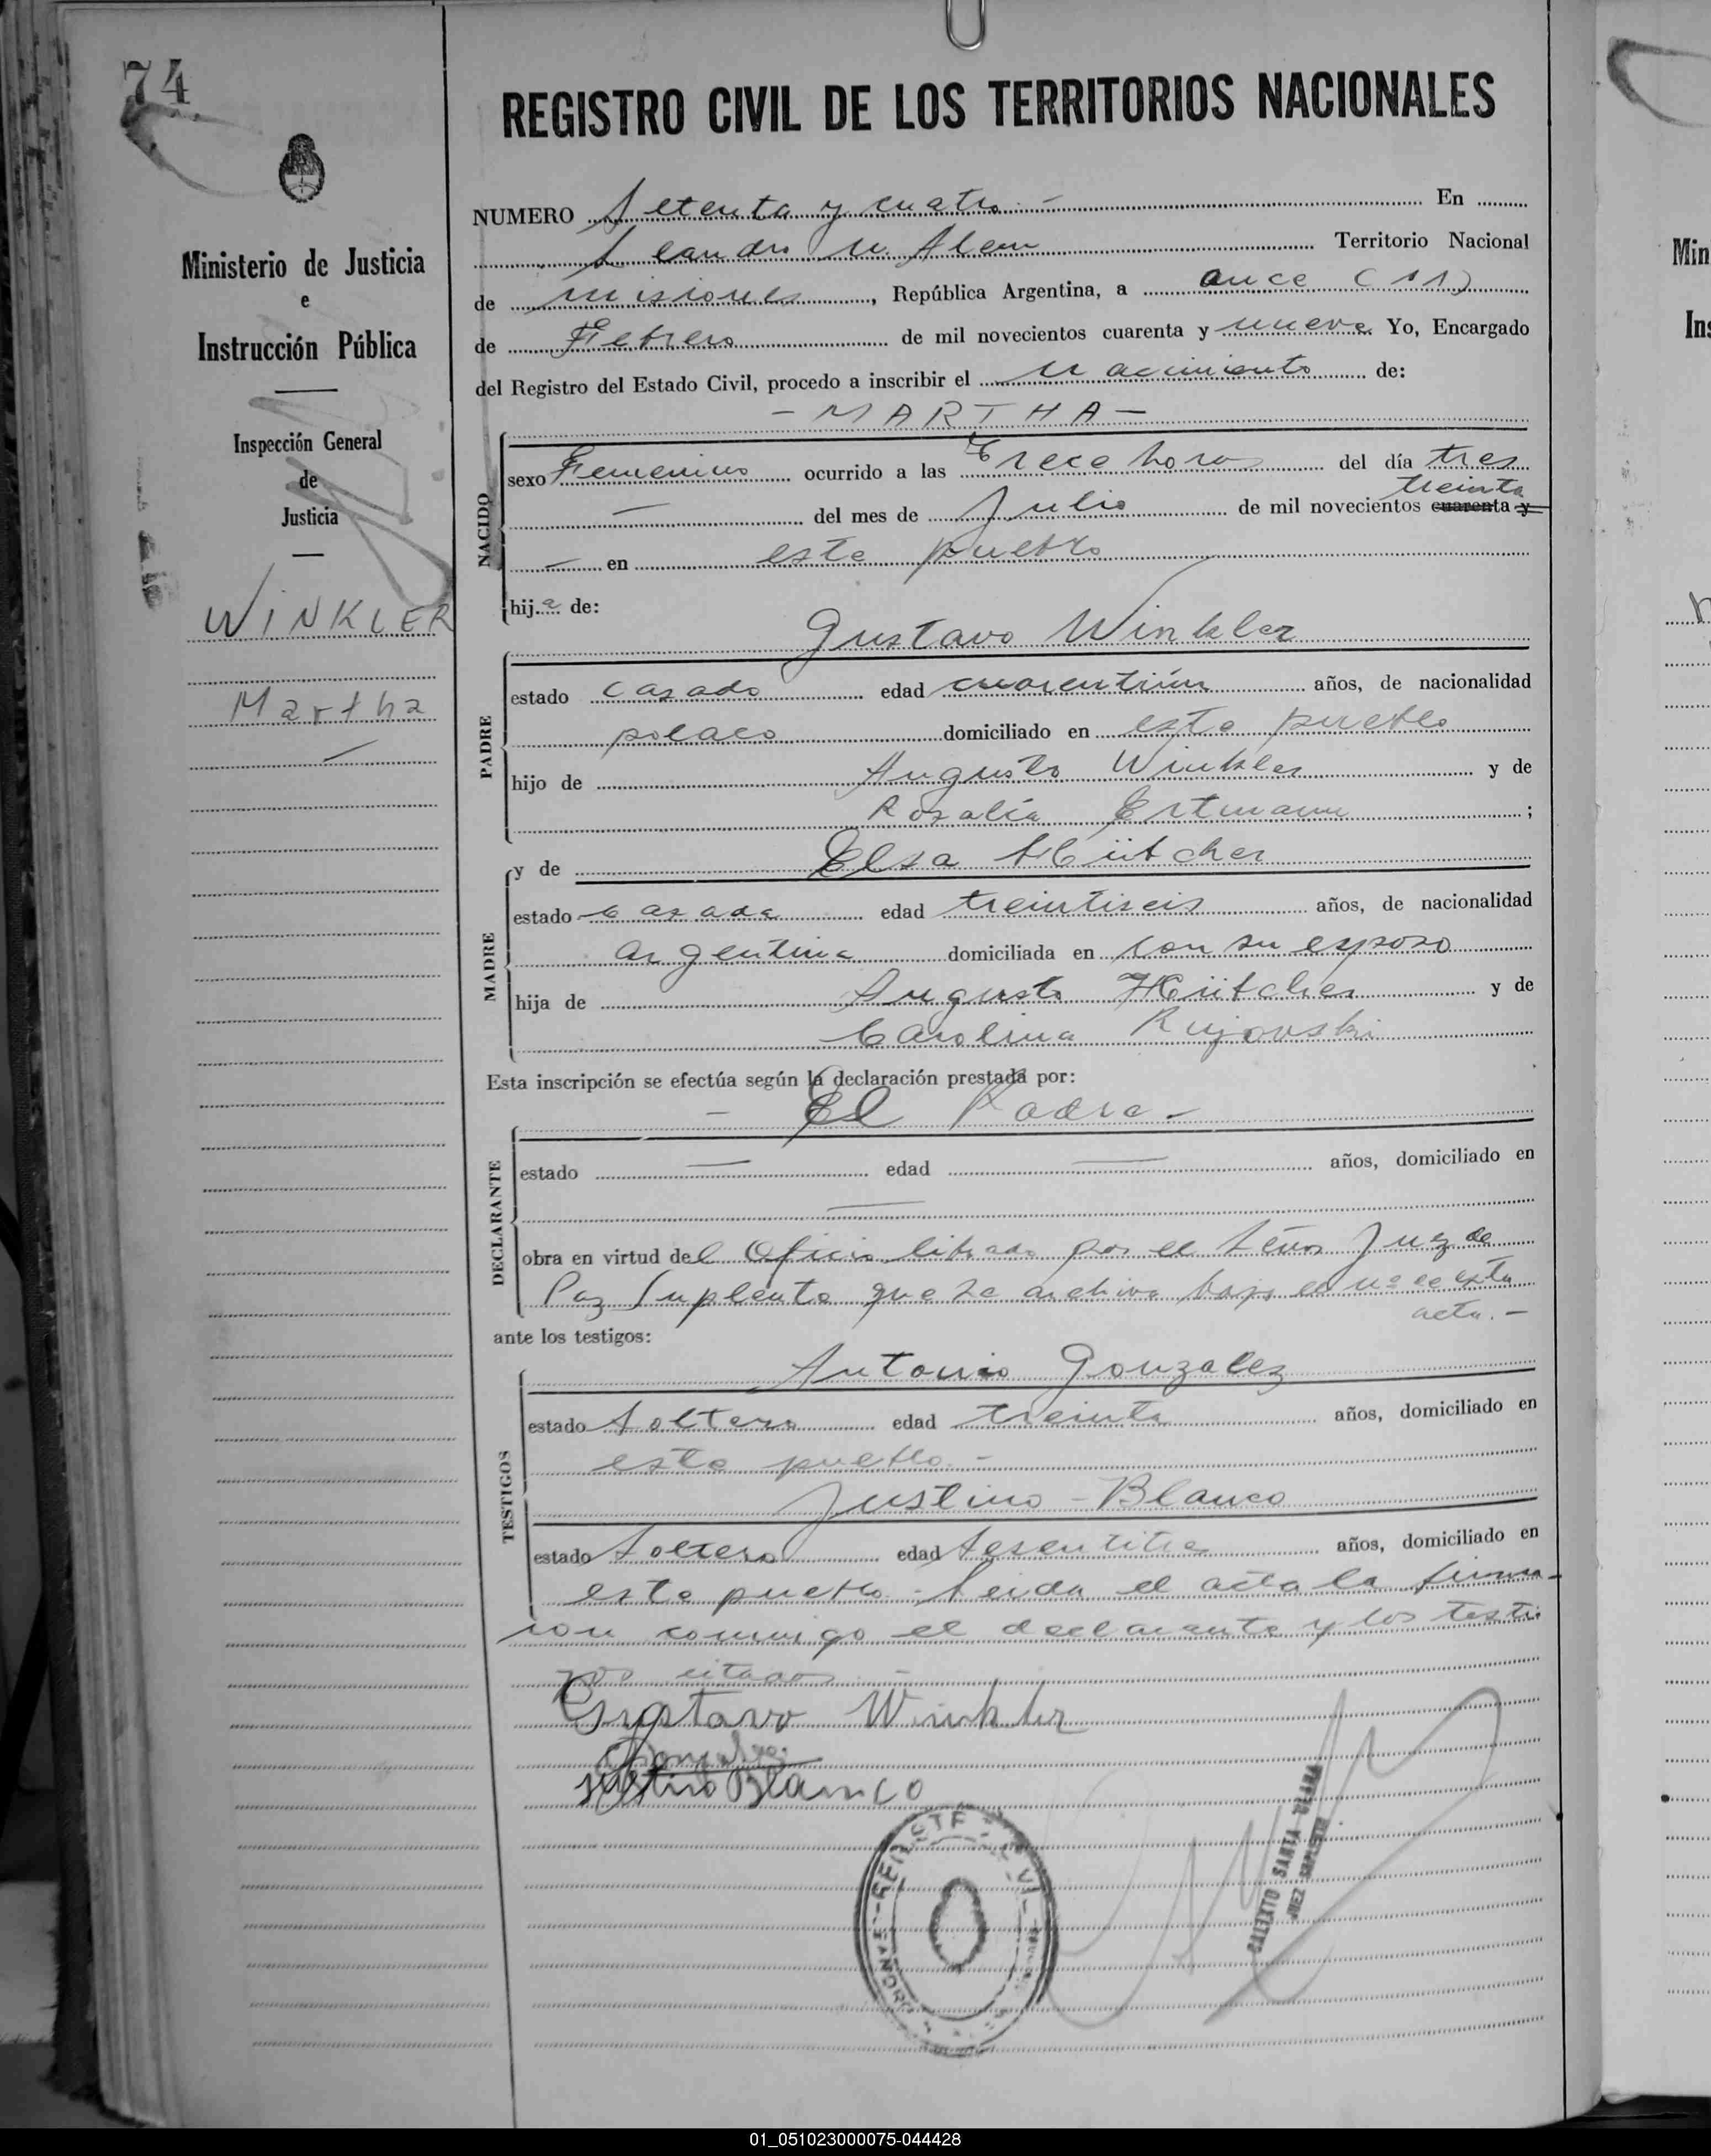 74
REGISTRO CIVIL DE LOS TERRITORIOS NACIONALES
Ministerio de Justicia
e
Instrucción Pública
Inspección General
de
Justicia
WINKLER
Martha
NUMERO Setenta y cuatro.- En
Leandro N. Alem Territorio Nacional
de misiones, República Argentina, a once (11)
de Febrero de mil novecientos cuarenta y nueve Yo, Encargado
del Registro del Estado Civil, procedo a inscribir el nacimiento de:
- MARTHA -
NACIDO
sexo Femenino ocurrido a las Trece horas del día tres
treinta
— del mes de Julio de mil novecientos cuarenta y
— en este pueblo
hija de:
Gustavo Winkler
PADRE
estado casado edad cuarentiún años, de nacionalidad
polaco domiciliado en este pueblo
hijo de Augusto Winkler y de
Rosalía Ertmann ;
y de Elsa Hütcher
MADRE
estado casada edad treintiseis años, de nacionalidad
argentina domiciliada en con su esposo
hija de Augusto Hütcher y de
Carolina Rujovski
Esta inscripción se efectúa según la declaración prestada por:
- El Padre -
DECLARANTE
estado — edad — años, domiciliado en
—
obra en virtud del Oficio librado por el Señor Juez de
Paz Suplente que se archiva bajo el nº de esta
acta.-
ante los testigos:
Antonio Gonzalez
TESTIGOS
estado Soltero edad treinta años, domiciliado en
este pueblo.-
Justino - Blanco
estado Soltero edad sesentitres años, domiciliado en
este pueblo.- Leida el acta la firma-
ron conmigo el declarante y los testi-
gos citados.-
Gustavo Winkler
Justino Blanco
CALIXTO SANTA CLARA
JUEZ SUPLENTE
01_051023000075-044428